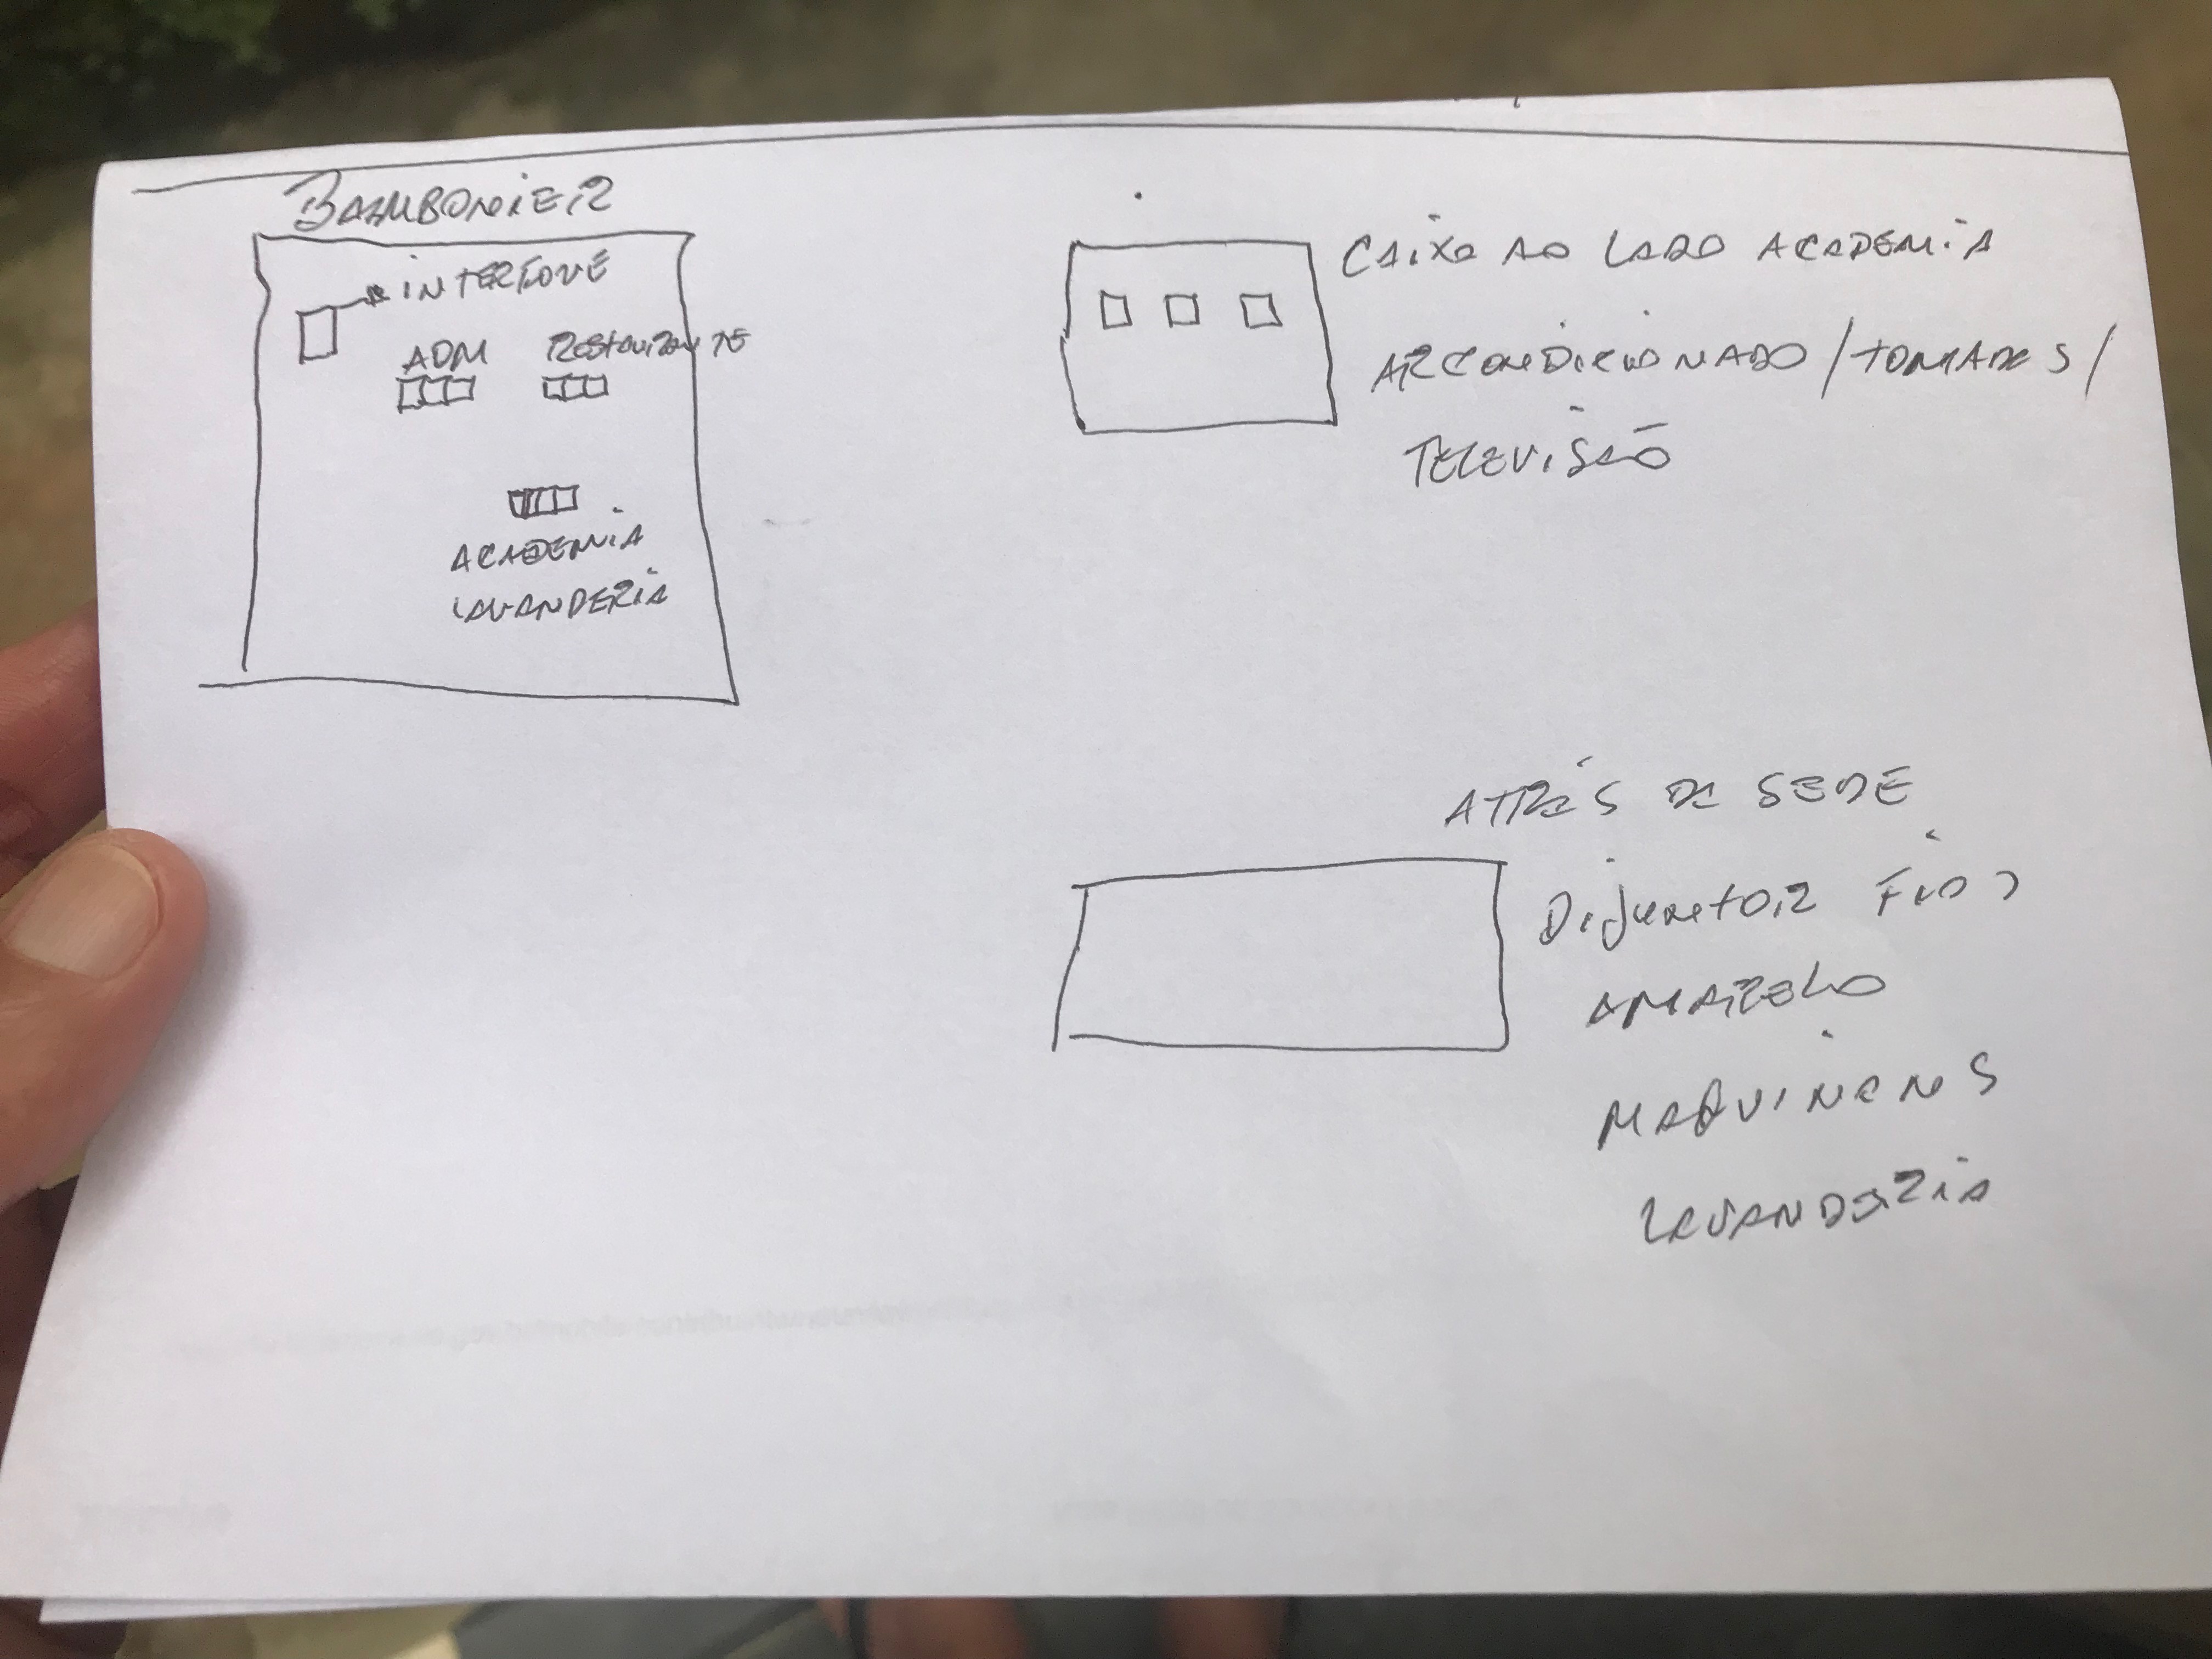 BAMBOREIR
INTERFONE
ADM RESTAURANTE
ACADEMIA
LAVANDERIA
CAIXA AO LADO ACADEMIA
ARCONDICIONADO / TOMADAS /
TELEVISÃO
ATRÁS DE SEDE
DISJUNTOR FIO
AMARELO
MAQUINAS
LAVANDERIA